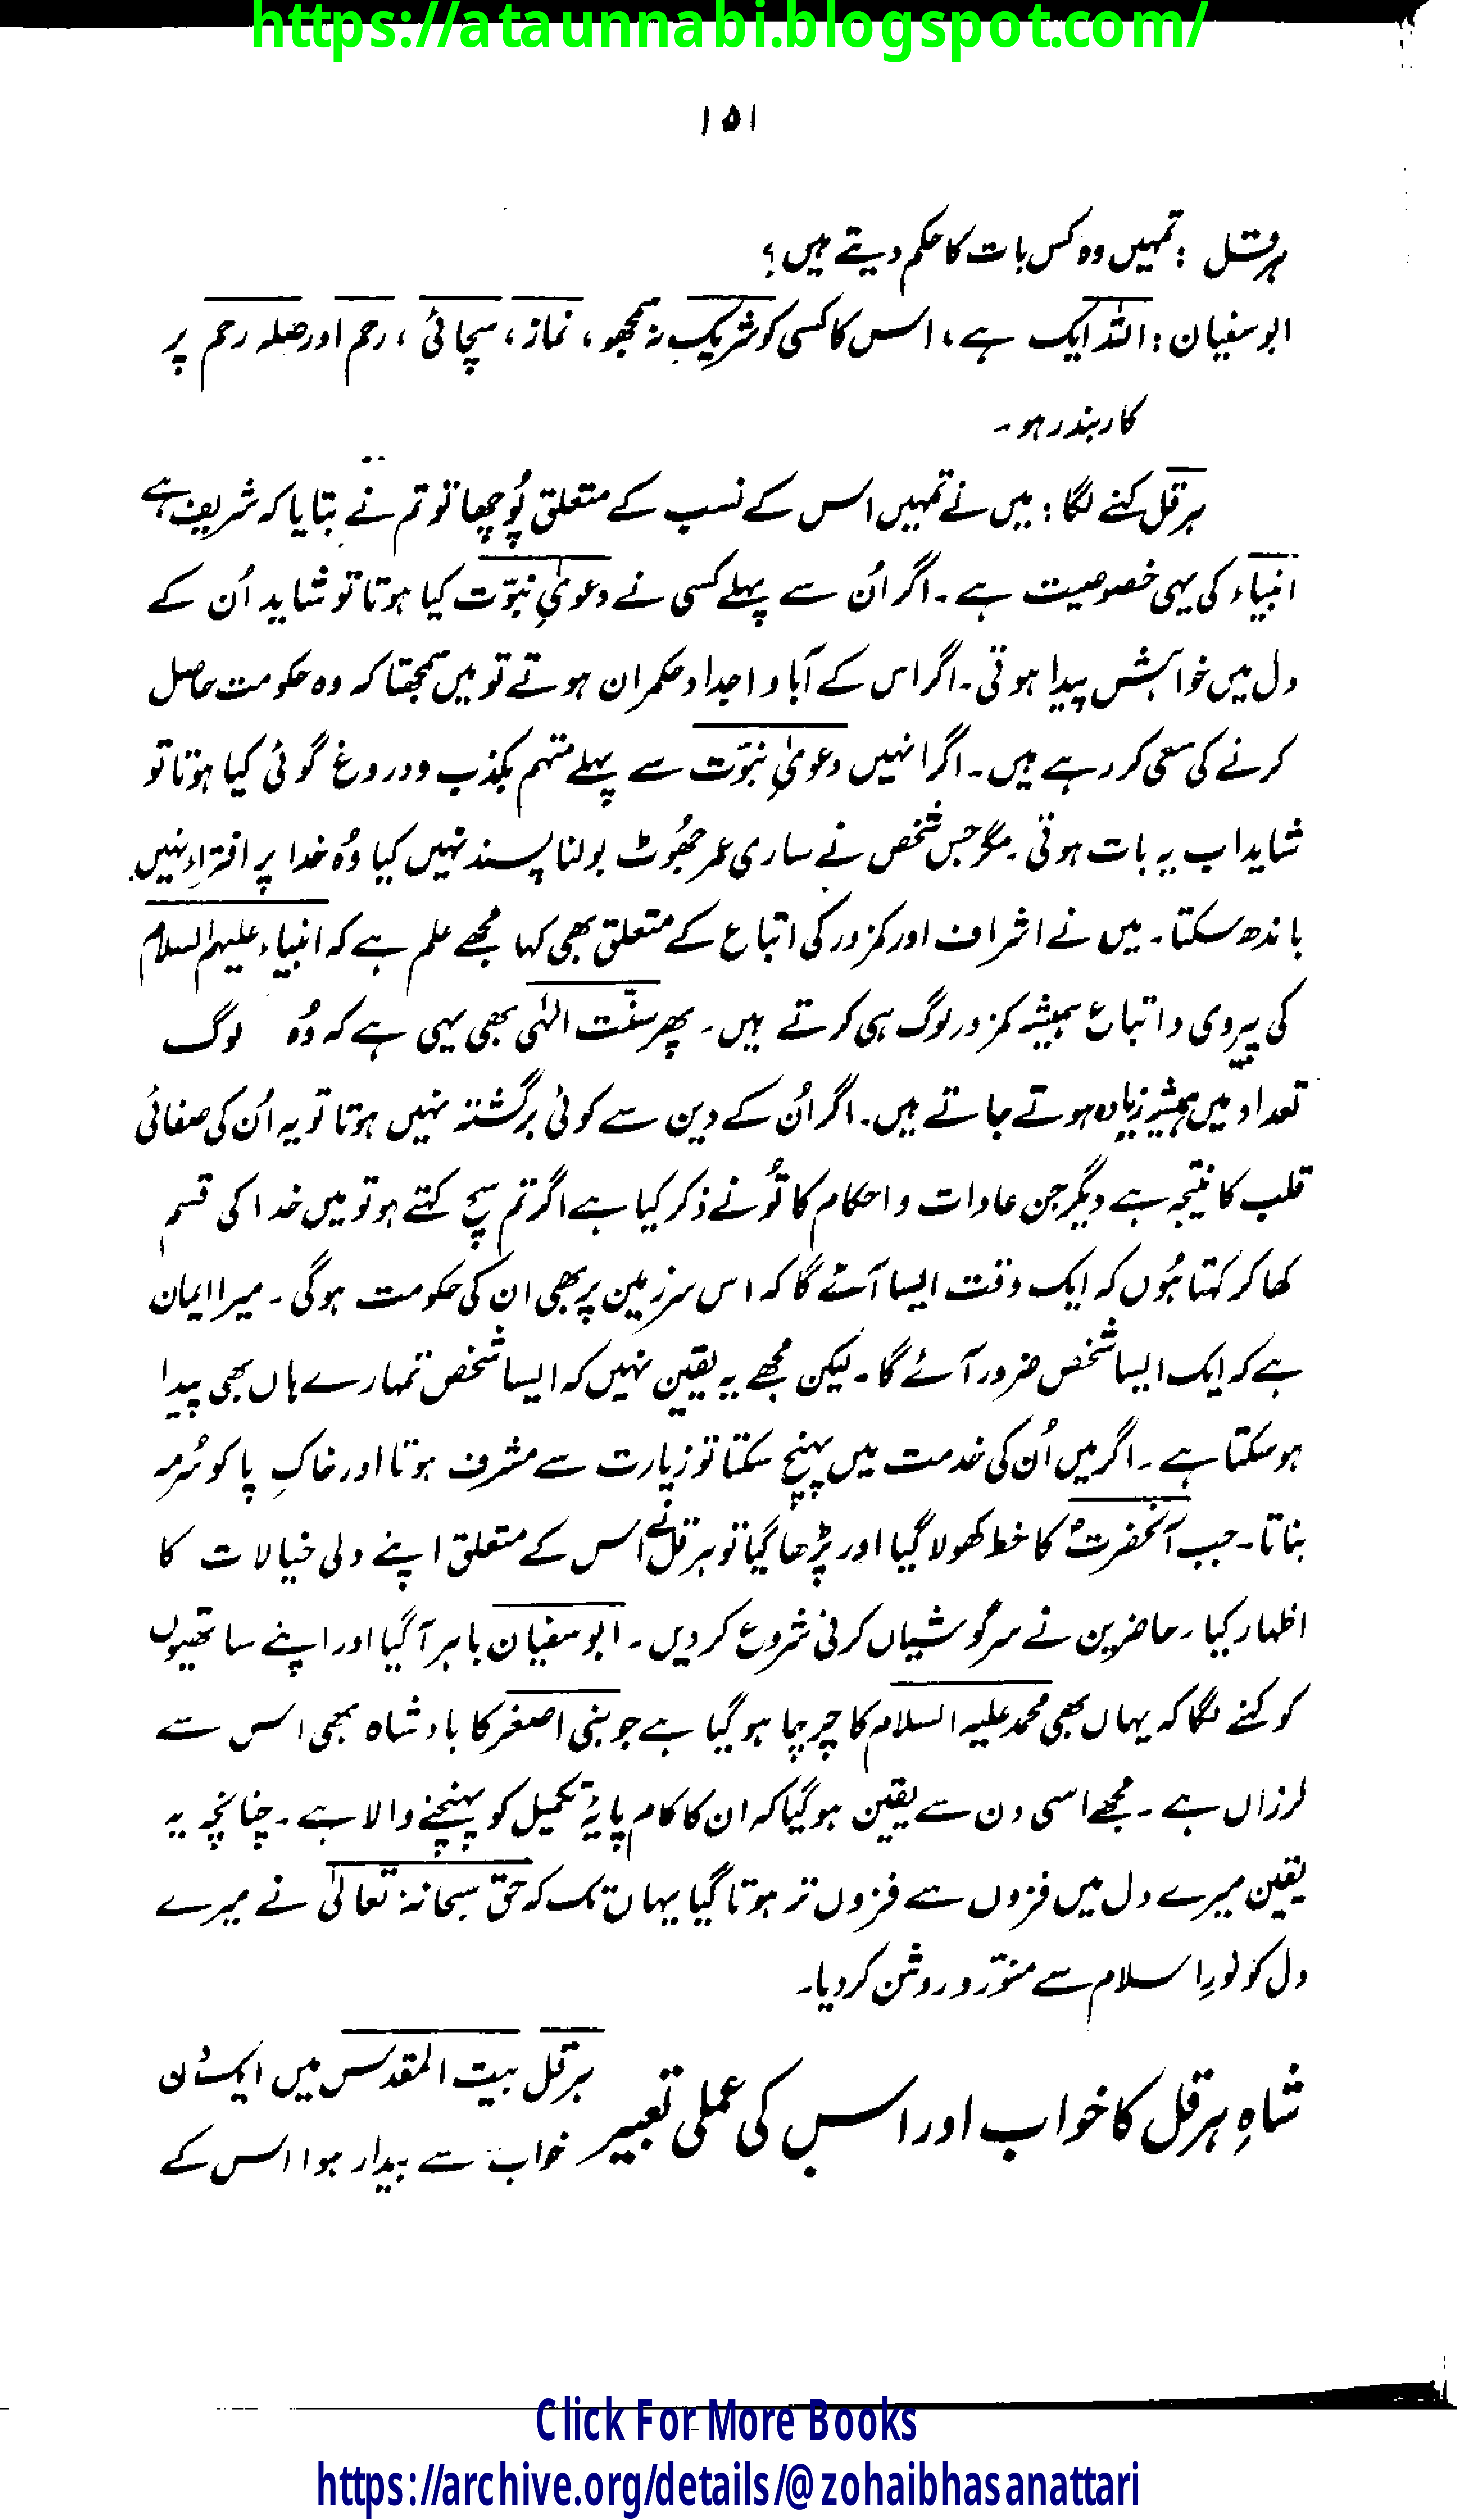 https://ataunnabi.blogspot.com/
۱۵۱
ہرقل : تمہیں وہ کس بات کا حکم دیتے ہیں؟
ابوسفیان : اللہ ایک ہے ، اس کا کسی کو شریک نہ سمجھو ، نماز ، سچائی ، رحم اور صلہ رحم پر
کاربند رہو ۔
ہرقل کہنے لگا : میں نے تمہیں اس کے نسب کے متعلق پُوچھا تو تم نے بتایا کہ شریف ہے
انبیاء کی یہی خصوصیت ہے ۔ اگر اُن سے پہلے کسی نے دعویٰ نبوّت کیا ہوتا تو شاید اُن کے
دل میں خواہش پیدا ہوتی ۔ اگر اس کے آباو اجداد حکمران ہوتے تو میں سمجھتا کہ وہ حکومت حاصل
کرنے کی سعی کر رہے ہیں ۔ اگر انہیں دعویٰ نبوّت سے پہلے متہم بکذب و دروغ گوئی کیا ہوتا تو
شاید اب یہ بات ہوتی ۔ مگر جس شخص نے ساری عمر جھُوٹ بولنا پسند نہیں کیا وُہ خدا پر افتراء نہیں
باندھ سکتا ۔ میں نے اشراف اور کمزور کی اتباع کے متعلق بھی کہا مجھے علم ہے کہ انبیاء علیہم السلام
کی پیروی و اتباع ہمیشہ کمزور لوگ ہی کرتے ہیں ۔ پھر سنّت الٰہی بھی یہی ہے کہ وُہ لوگ
تعداد میں ہمیشہ زیادہ ہوتے جاتے ہیں ۔ اگر اُن کے دین سے کوئی برگشتہ نہیں ہوتا تو یہ اُن کی صفائی
قلب کا نتیجہ ہے دیگر جن عادات و احکام کا تُو نے ذکر کیا ہے اگر تم سچ کہتے ہو تو میں خدا کی قسم
کھا کر کہتا ہُوں کہ ایک وقت ایسا آئے گا کہ اس سرزمین پر بھی ان کی حکومت ہوگی ۔ میرا ایمان
ہے کہ ایک ایسا شخص ضرور آئے گا ۔ لیکن مجھے یہ یقین نہیں کہ ایسا شخص تمہارے ہاں بھی پیدا
ہوسکتا ہے ۔ اگر میں اُن کی خدمت میں پہنچ سکتا تو زیارت سے مشرف ہوتا اور خاکِ پا کو سُرمہ
بناتا ۔ جب آنحضرتؐ کا خط کھولا گیا اور پڑھا گیا تو ہرقل نے اس کے متعلق اپنے دلی خیالات کا
اظہار کیا ۔ حاضرین نے سرگوشیاں کرنی شروع کر دیں ۔ ابوسفیان باہر آ گیا اور اپنے ساتھیوں
کو کہنے لگا کہ یہاں بھی محمد علیہ السلام کا چرچا ہو گیا ہے جو بنی اصغر کا بادشاہ بھی اس سے
لرزاں ہے ۔ مجھے اسی دن سے یقین ہو گیا کہ ان کا کام پایۂ تکمیل کو پہنچنے والا ہے ۔ چنانچہ یہ
یقین میرے دل میں فزوں سے فزوں تر ہوتا گیا یہاں تک کہ حق سبحانہٗ تعالیٰ نے میرے
دل کو نورِ اسلام سے منوّر و روشن کر دیا ۔
شاہِ ہرقل کا خواب اور اس کی عملی تعبیر
ہرقل بیت المقدس میں ایک دن
خواب سے بیدار ہوا اس کے
Click For More Books
https://archive.org/details/@zohaibhasanattari